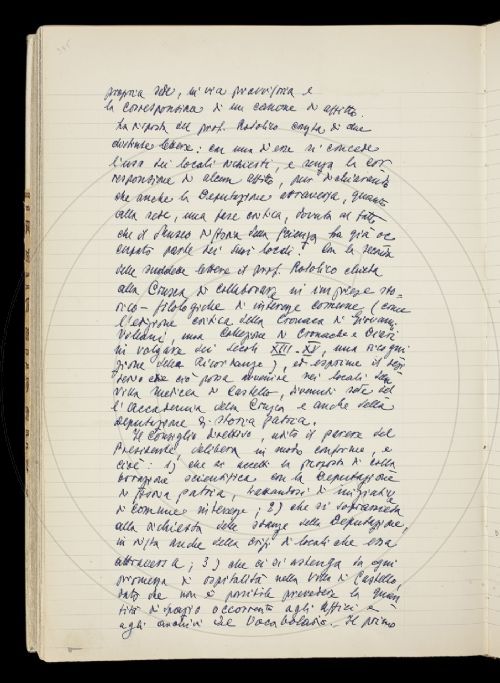 propria sede, in via provvisoria e
la corresponsione di un canone di affitto.
La risposta del prof. Rodolico consta di due
distinte lettere: con una di esse si concede
l'uso dei locali richiesti, e senza la cor
responsione di alcun affitto, pur dichiarando
che anche la Deputazione attraversa, quanto
alla sede, una fase critica, dovuta al fatto
che il Museo di Storia della Scienza ha già oc
cupato parte dei suoi locali. Con la seconda
delle suddette lettere il prof. Rodolico chiede
alla Crusca di collaborare in imprese sto
rico-filologiche di interesse comune (come
l'edizione critica della Cronaca di Giovanni
Villani, una collezione di Cronache e Diari
in volgare dei secoli XIII-XV, una ricogni
zione delle Ricordanze), ed esprime il desi
derio che ciò possa avvenire nei locali della
villa medicea di Castello, divenuti sede del
l'Accademia della Crusca e anche della
Deputazione di storia patria.
Il Consiglio direttivo, udito il parere del
Presidente, delibera in modo conforme, e
cioè: 1) che si accetti la proposta di colla
borazione scientifica con la Deputazione
di storia patria, trattandosi di iniziative
di comune interesse; 2) che si soprassieda
alla richiesta delle stanze della Deputazione,
in vista anche della crisi di locali che essa
attraversa; 3) che ci si astenga da ogni
promessa di ospitalità nella Villa di Castello,
dato che non è possibile prevedere la quan
tità di spazio occorrente agli uffici e
agli archivi del Vocabolario. Il primo